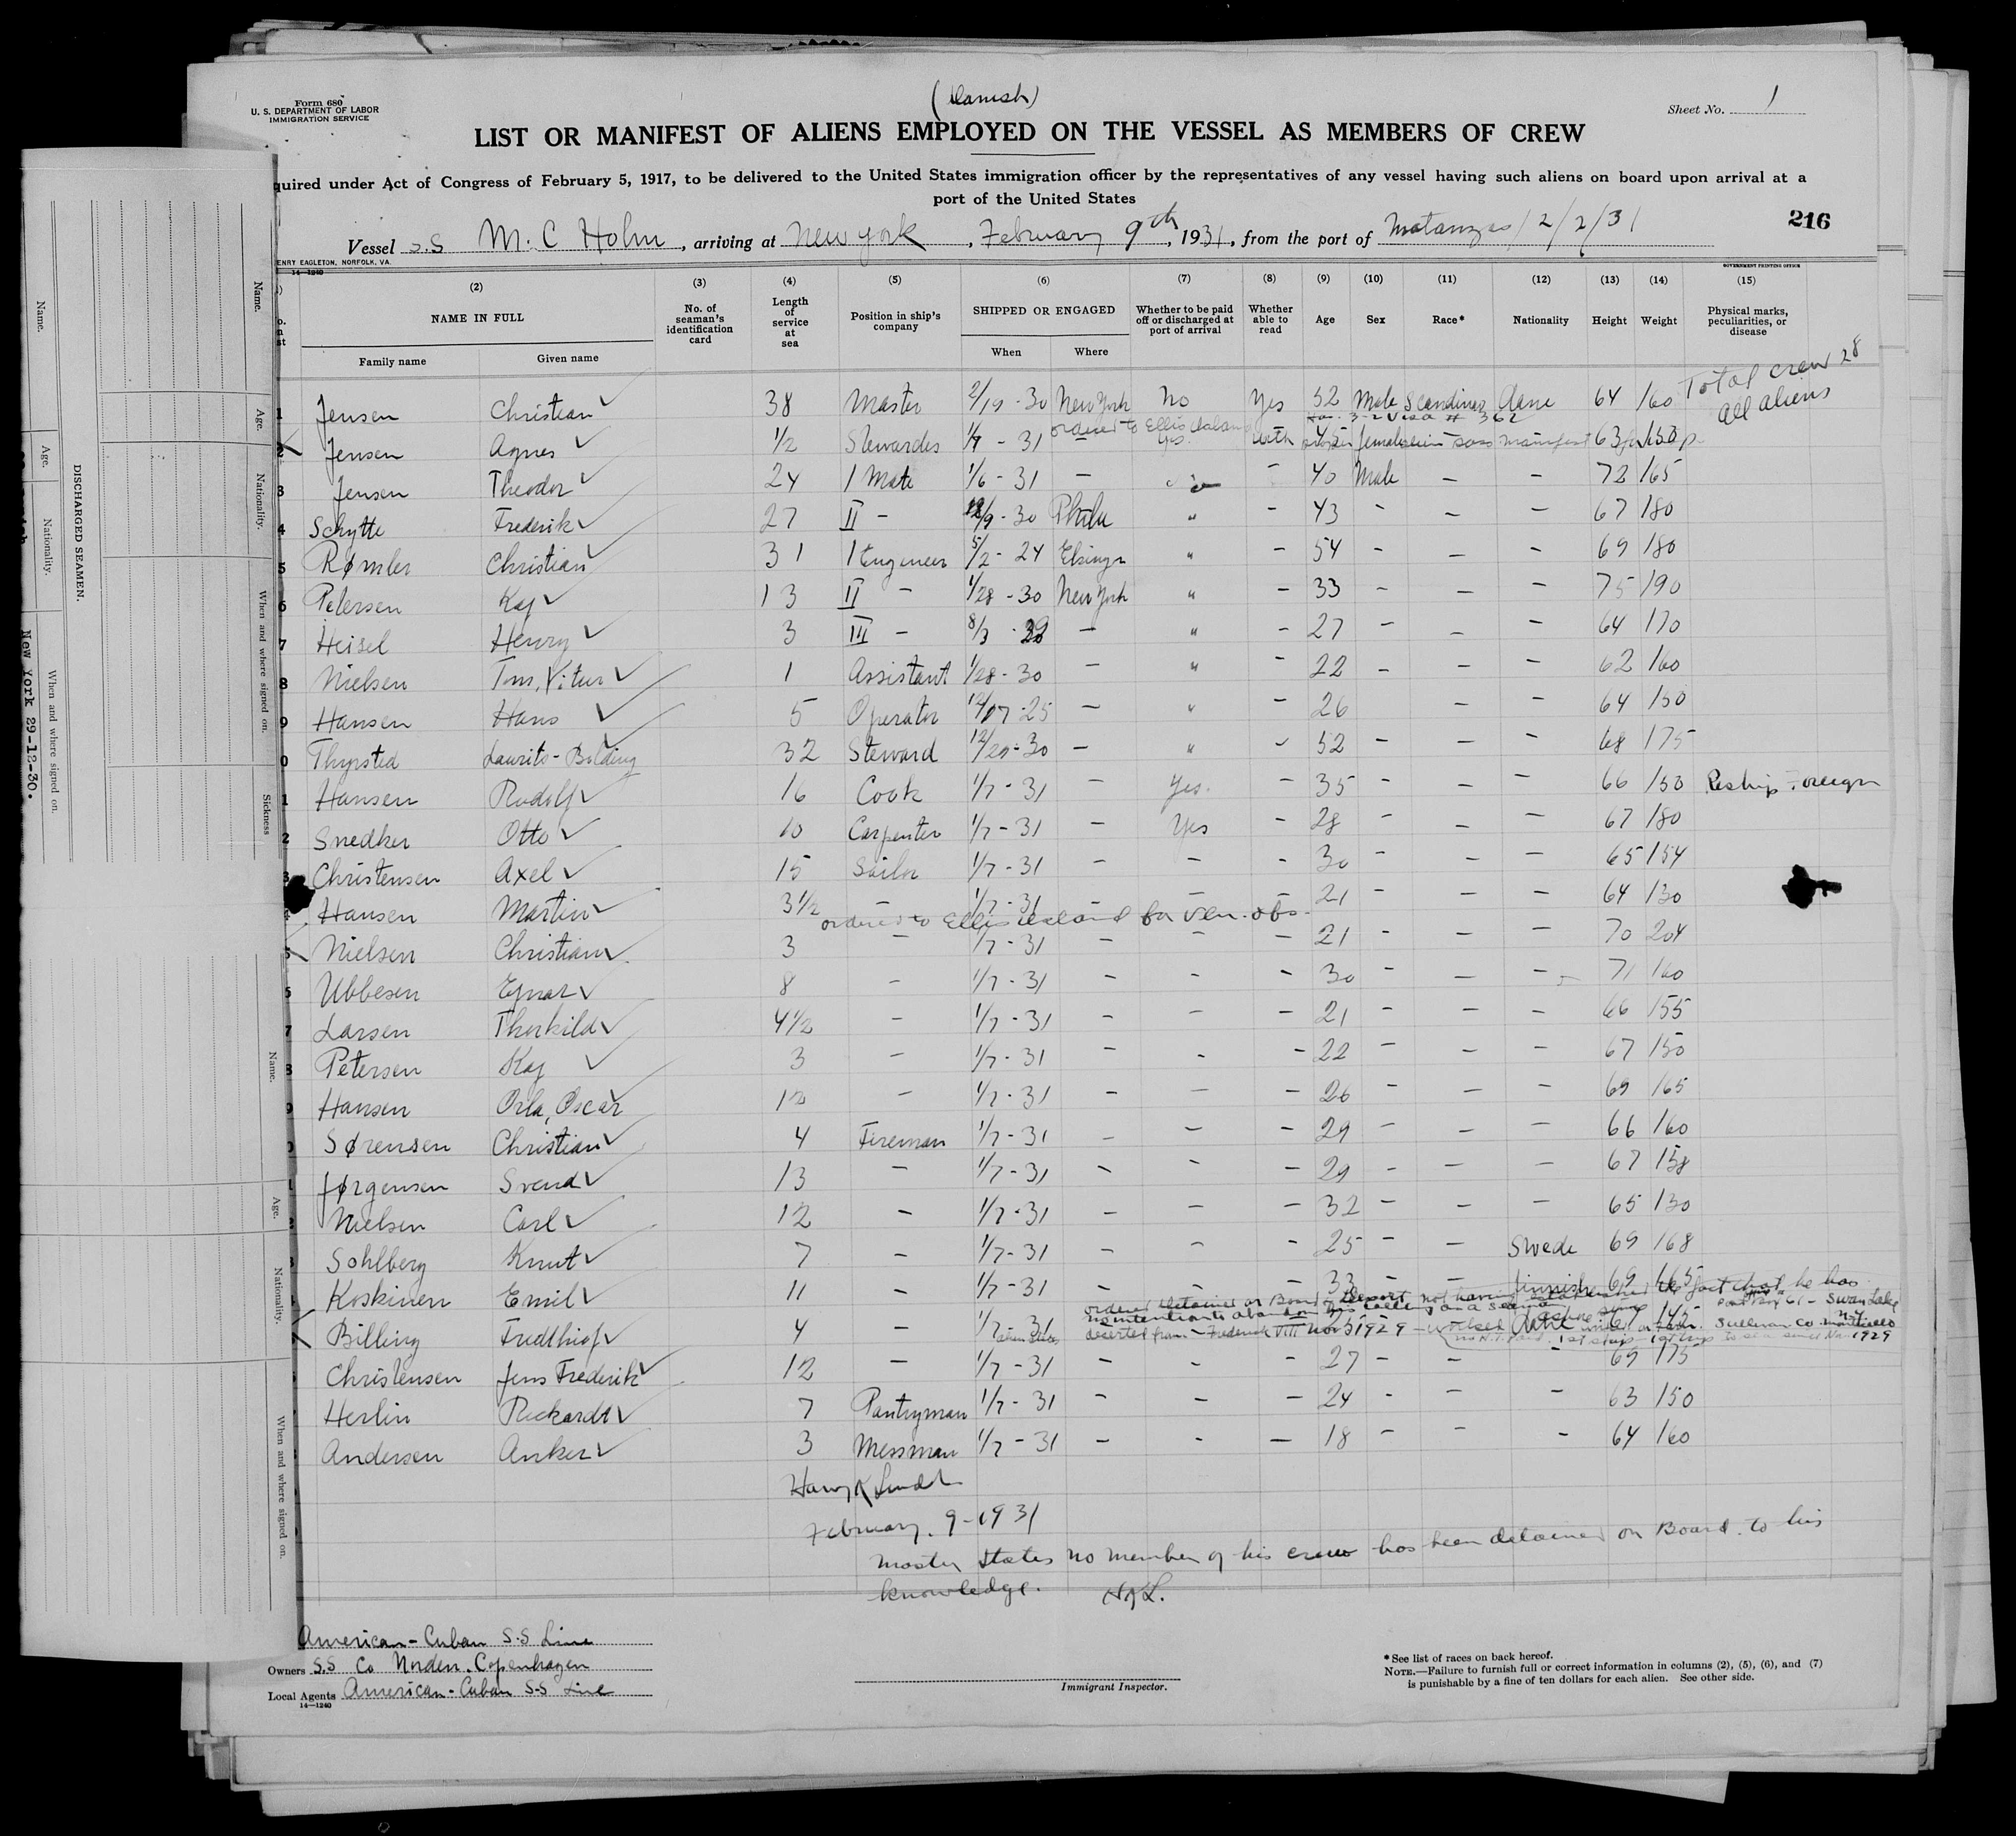 Form 680
U. S. DEPARTMENT OF LABOR
IMMIGRATION SERVICE
(Danish)
Sheet No. 1
LIST OR MANIFEST OF ALIENS EMPLOYED ON THE VESSEL AS MEMBERS OF CREW
quired under Act of Congress of February 5, 1917, to be delivered to the United States immigration officer by the representatives of any vessel having such aliens on board upon arrival at a
port of the United States
216
Vessel S.S M. C Holm, arriving at New York, February 9th, 1931, from the port of Matanzas 2/2/31
ENRY EAGLETON, NORFOLK, VA.
14—1240
GOVERNMENT PRINTING OFFICE
(2) (3) (4) (5) (6) (7) (8) (9) (10) (11) (12) (13) (14) (15)
NAME IN FULL
Family name Given name
No. of seaman's identification card
Length of service at sea
Position in ship's company
SHIPPED OR ENGAGED
When Where
Whether to be paid off or discharged at port of arrival
Whether able to read
Age Sex Race* Nationality Height Weight
Physical marks, peculiarities, or disease
Total crew 28
All aliens
1 Jensen Christian 38 Master 2/19-30 New York No Yes 52 Male Scandinav Dane 64 160
ordered to Ellis Island
2 Jensen Agnes 1/2 Stewardes 1/7-31 yes. with female manifest 63
3 Jensen Theodor 24 1 Mate 1/6-31 — - 40 Male — — 72 165
4 Schytte Frederik 27 II - /9-30 Phila " - 43 - — - 67 180
5 Rømler Christian 31 1 Engineer 5/2-24 " - 54 - — - 69 180
6 Petersen Kaj 13 II - 1/28-30 New York " - 33 - — - 75 190
7 Heisel Henry 3 III - 8/3 - " - 27 - — - 64 170
8 Nielsen 1 Assistant 1/28-30 - " - 22 - - - 62 160
9 Hansen Hans 5 Operator 12/17-25 - " 26 - - 64 150
0 Thyrsted Laurits- 32 Steward 12/29-30 - " - 52 - - - 68 175
1 Hansen Rudolf 16 Cook 1/7-31 - Yes. - 35 - - - 66 150 Reship Foreign
2 Snedker Otto 10 Carpenter 1/7-31 - Yes - 28 - - - 67 180
3 Christensen Axel 15 Sailor 1/7-31 - - - 30 - - - 65 154
4 Hansen Martin 3 1/2 - 1/7-31 - - - 21 - - - 64 130
ordered to Ellis Island for Ven. obs.
5 Nielsen Christian 3 - 1/7-31 - - - 21 - - - 70 204
Ubbesen Ejnar 8 - 1/7-31 - - - 30 - - - 71 160
7 Larsen Thorkild 4 1/2 - 1/7-31 - - - 21 - - - 66 155
Petersen Kaj 3 - 1/7-31 - - - 22 - - - 67 150
9 Hansen Orla, Oscar - 1/7-31 - - - 26 - - - 69 165
0 Sørensen Christian 4 Fireman 1/7-31 - - - 29 - - - 66 160
Jørgensen Svend 13 - 1/7-31 - - - 29 - - - 67 158
Nielsen Carl 12 - 1/7-31 - - - 32 - - - 65 130
Sohlberg Knut 7 - 1/7-31 - - - 25 - - Swede 69 168
Koskinen Emil 11 - 1/7-31 - - - 33 - - finnish 69 165
ordered detained on Board & Deport not having established the fact that he has
no intention to abandon his calling as a seaman
Billing Fridthiof 4 - 1/7-31 67 145 Swan Lake
deserted from Frederik VIII Nov 3 1929 - worked Sullivan Co. Monticello
Christensen Jens Frederik 12 - 1/7-31 - - - 27 - - - 69 175
Herlin Rickardt 7 Pantryman 1/7-31 - - - 24 - - - 63 150
Andersen Anker 3 Messman 1/7-31 - - - 18 - - - 64 160
February. 9-1931
Master states no member of his crew has been detained on Board to his
knowledge.
American-Cuban S.S Line
Owners S.S Co Norden. Copenhagen
Local Agents American-Cuban S-S Line
14—1240
Immigrant Inspector.
*See list of races on back hereof.
NOTE.—Failure to furnish full or correct information in columns (2), (5), (6), and (7)
is punishable by a fine of ten dollars for each alien. See other side.
DISCHARGED SEAMEN.
Name. Age. Nationality. When and where signed on.
New York 29-12-30.
Name. Age. Nationality. When and where signed on. Sickness
Name. Age. Nationality. When and where signed on.